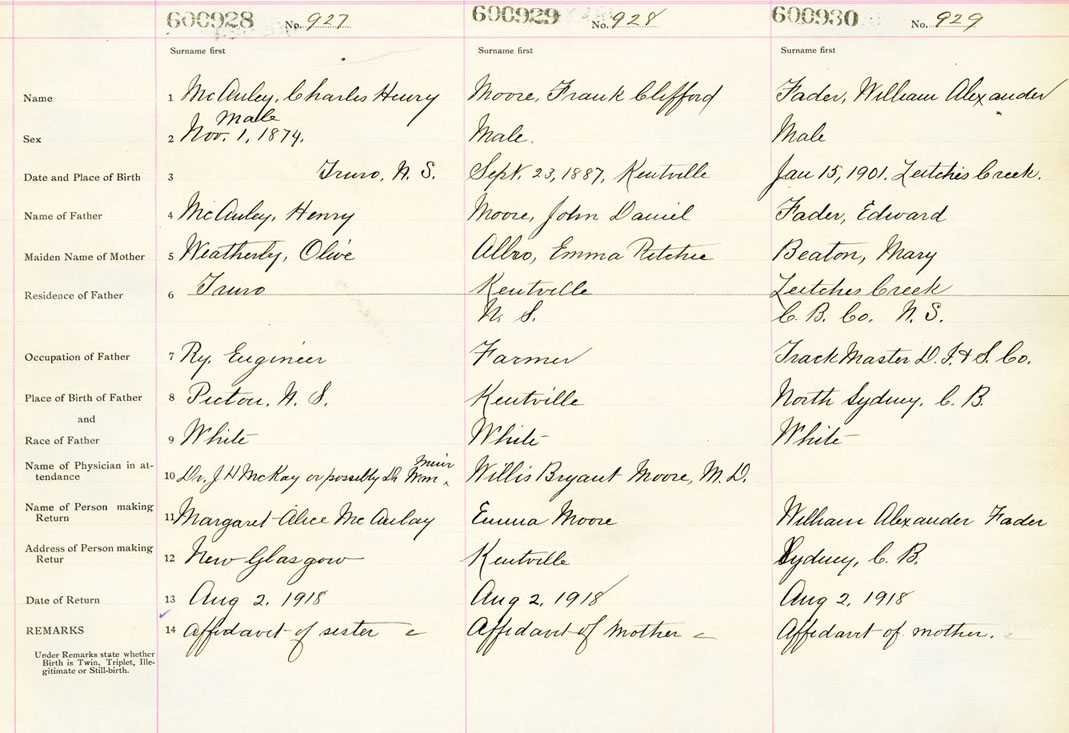 600928 No. 927 600929 No. 928 600930 No. 929
Surname first Surname first Surname first
Name 1 McAuley, Charles Henry Moore, Frank Clifford Fader, William Alexander
Male
Sex 2 Nov. 1, 1874. Male. Male
Date and Place of Birth 3 Truro, N. S. Sept. 23, 1887, Kentville Jan 15, 1901. Leitches Creek.
Name of Father 4 McAuley, Henry Moore, John Daniel Fader, Edward
Maiden Name of Mother 5 Weatherby, Olive Albro, Emma Ritchie Beaton, Mary
Residence of Father 6 Truro Kentville Leitches Creek
N. S. C. B. Co. N. S.
Occupation of Father 7 Ry. Engineer Farmer Track Master D. I. & S. Co.
Place of Birth of Father 8 Pictou, N. S. Kentville North Sydney, C. B.
and
Race of Father 9 White White White
Name of Physician in at-
tendance 10 Dr. J H McKay or possibly Dr Wm Muir Willis Bryant Moore, M. D.
Name of Person making
Return 11 Margaret Alice McAulay Emma Moore William Alexander Fader
Address of Person making
Retur 12 New Glasgow Kentville Sydney, C. B.
Date of Return 13 Aug 2, 1918 Aug 2, 1918 Aug 2, 1918
REMARKS 14 Affidavit of sister Affidavit of Mother Affidavit of mother.
Under Remarks state whether
Birth is Twin, Triplet, Ille-
gitimate or Still-birth.